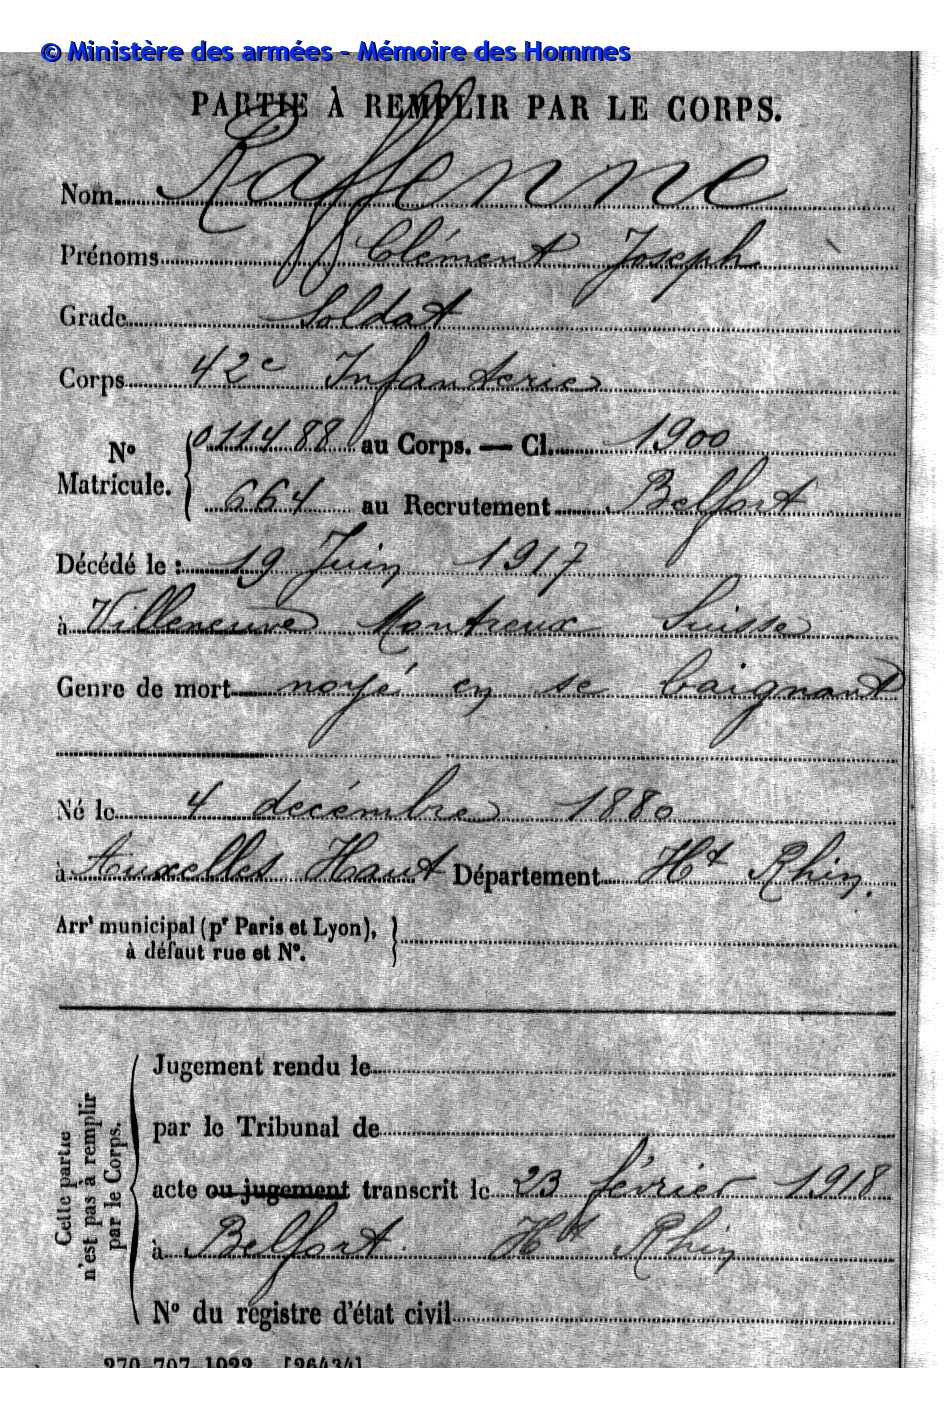 © Ministère des armées - Mémoire des Hommes
PARTIE À REMPLIR PAR LE CORPS.
Nom Raffenne
Prénoms Clément Joseph
Grade Soldat
Corps 42e Infanterie
No Matricule. { 011488 au Corps. — Cl. 1900
664 au Recrutement Belfort
Décédé le : 19 Juin 1917
à Villeneuve Montreux Suisse
Genre de mort noyé en se baignant
Né le 4 décembre 1880
à Auxelles Haut Département Ht Rhin.
Arrt municipal (pr Paris et Lyon), }
à défaut rue et No.
Cette partie n'est pas à remplir par le Corps.
Jugement rendu le
par le Tribunal de
acte ou jugement transcrit le 23 février 1918
à Belfort. Ht Rhin
No du registre d'état civil
270-707-1922. [26434]